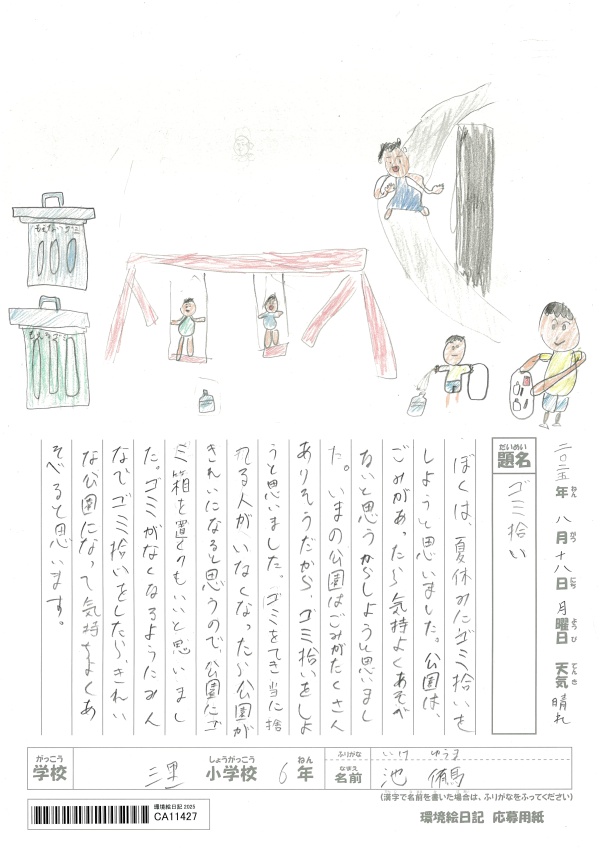 もえないゴミ
二〇二五年 八月十八日 月曜日 天気 晴れ
ねん がつ にち ようび てんき
だいめい
題名 ゴミ拾い
ぼくは、夏休みにゴミ拾いを
しようと思いました。公園は、
ごみがあったら気持よくあそべ
ないと思うからしようと思いまし
た。いまの公園はごみがたくさん
ありそうだから、ゴミ拾いをしよ
うと思いました。「ゴミをてき当に捨
てる人がいなくなったら公園が
きれいになると思うので、公園にゴ
ミ箱を置くのもいいと思いまし
た。ゴミがなくなるようにみん
なで、ゴミ拾いをしたら、きれい
な公園になって気持ちよくあ
そべると思います。
がっこう しょうがっこう ねん ふりがな いけ ゆうま
学校 三里 小学校 6年 なまえ 名前 池 侑馬
(漢字で名前を書いた場合は、ふりがなをふってください)
環境絵日記 2025
CA11427
環境絵日記 応募用紙